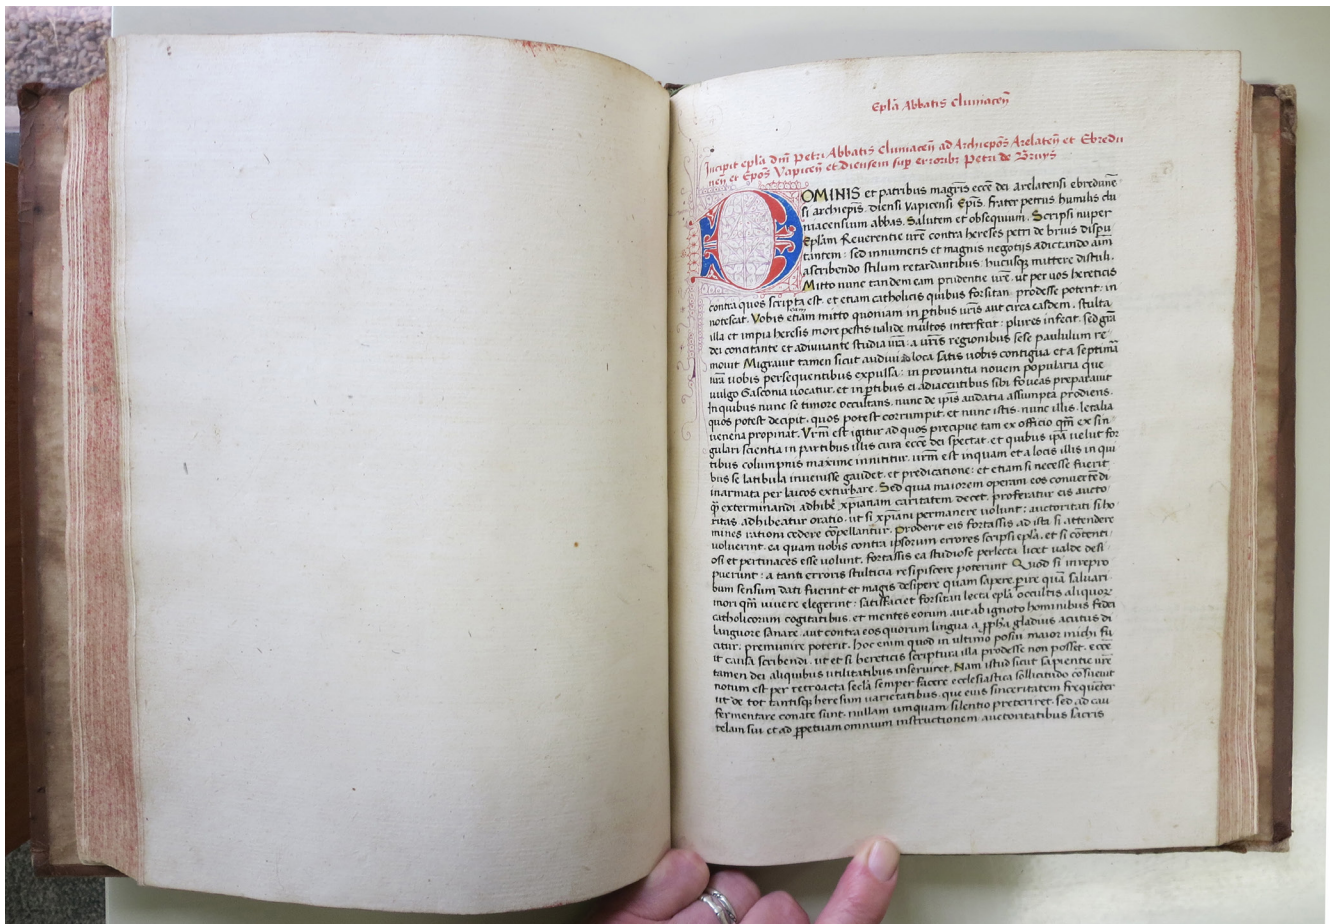 Epl̄a Abbatis Cluniaceñ
Incipit epl̄a dm̄ Petri Abbatis Cluniaceñ ad Archiepos̄ Arelateñ et Ebredu
neñ et Epos̄ Vapiceñ et Diensem sup erroribꝫ Petri de Bruys
DOMINIS et patribus magris̄ ecce̅ dei arelatensi ebredune̅
si archiepis̄. diensi vapicensi Epis̄. frater petrus humilis clu
niacensium abbas. Salutem et obsequium. Scripsi nuper
Eplam̄ Reverentie vr̄e contra hereses petri de brius dispu
tantem: sed innumeris et magnis negotijs adictando aim̄
ascribendo stilum retardantibus. hucusqꝫ mittere distuli.
Mitto nunc tandem eam prudentie vr̄e. ut per vos hereticis
contra quos scripta est. et etiam catholicis quibus forsitan prodesse poterit. in
notescat. Vobis etiam mitto quoniam in ꝑtibus vris̄ aut circa easdem. stulta
illa et impia heresis more pestis valide multos interfecit: plures infecit. sed gra̅
dei concitante et adiuvante studia vr̄a: a vris̄ regionibus sese paululum re
movit Migravit tamen sicut audivi ad loca satis vobis contigua et a septima̅
vr̄a vobis persequentibus expulsa: in provintia novem popularia que
vulgo Gasconia vocatur. et in ꝑtibus ei adiacentibus sibi foveas preparavit
Inquibus nunc se timore occultans. nunc de ipis̄ audatia assumpta prodiens.
quos potest decipit. quos potest corrumpit. et nunc istis. nunc illis. letalia
venena propinat. Vrm̄ est igitur ad quos precipue tam ex officio qm̄ ex sin
gulari scientia in partibus illis cura ecce̅ dei spectat. et quibus ipa̅ velut for
tibus columpnis maxime innititur. vrm̄ est inquam et a locis illis in qui
bus se latibula invenisse gaudet. et predicatione: et etiam si necesse fuerit
inarmata per laicos exturbare. Sed quia maiorem operam eos convertēdi
q̄ exterminandi adhibē xpianam̄ caritatem decet. proferatur eis aucto
ritas adhibeatur oratio. ut si xpiani̅ permanere volunt: auctoritati si ho
mines rationi cedere cōpellantur. Proderit eis fortassis ad ista si attendere
voluerint. ea quam vobis contra ipsorum errores scripsi epl̄a. et si cōtenti
osi et pertinaces esse volunt. fortassis ea studiose perlecta licet valde desi
puerint: a tanti erroris stulticia resipiscere poterunt Quod si in repro
bum sensum dati fuerint et magis desipere quam sapere. ꝑire quā salvari
mori qm̄ vivere elegerint: satisfaciet forsitan lecta epl̄a occultis aliquorꝫ
catholicorum cogitatibus. et mentes eorum aut ab ignoto hominibus fidei
languore sanare. aut contra eos quorum lingua a ꝓpha̅ gladius acutus di
citur. premunire poterit. hoc enim quod in ultimo posui maior michi fu
it causa scribendi. ut et si hereticis scriptura illa prodesse non posset. ecce̅
tamen dei aliquibus utilitatibus inserviret. Nam istud sicut sapientie vr̄e
notum est per retroacta secla̅ semper facere ecclesiastica sollicitudo cōsuevit
ut de tot tantisqꝫ heresum varietatibus. que eius sinceritatem frequēter
fermentare conate sunt. nullam umquam silentio preteriret. sed ad cau
telam sui et ad ꝑpetuam omnium instructionem auctoritatibus sacris